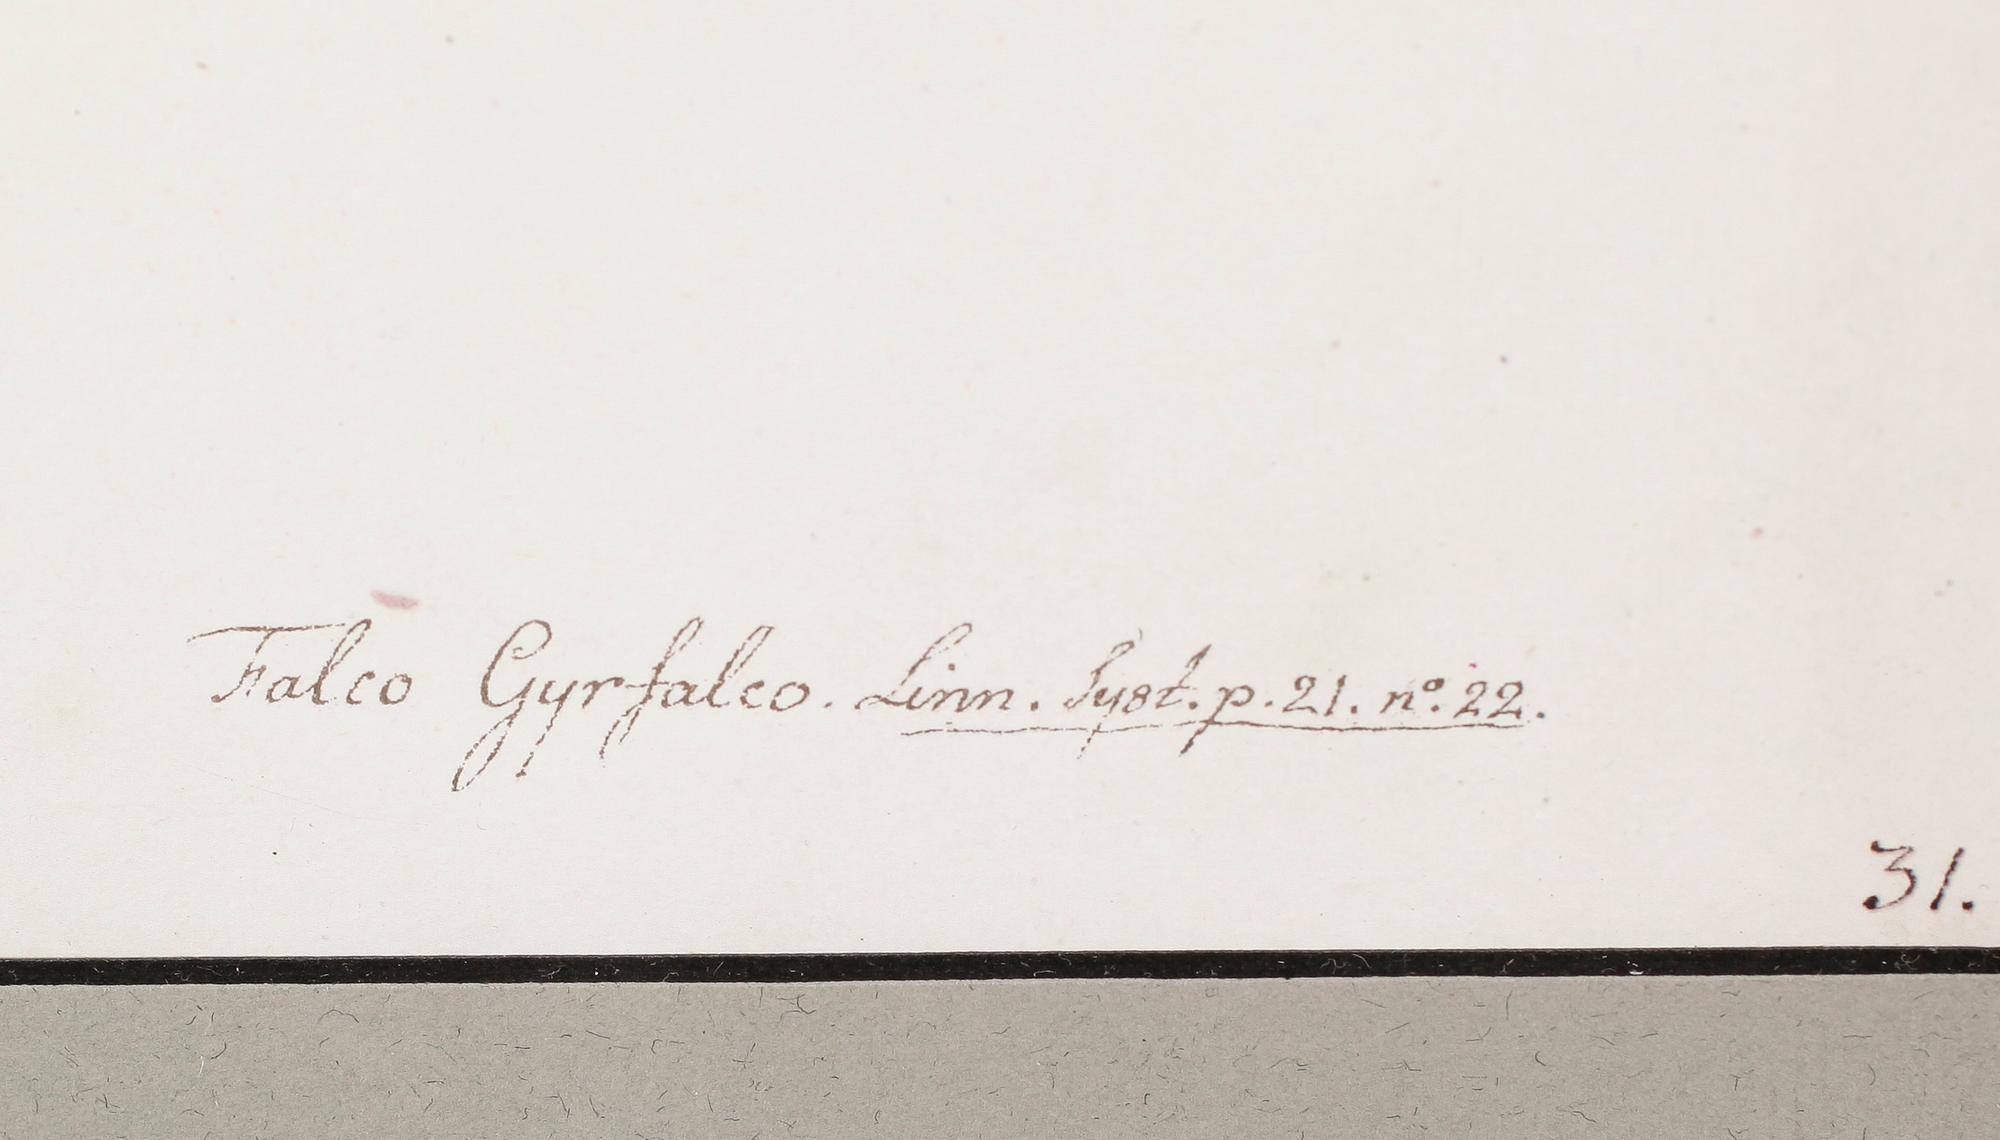 Falco Gyrfalco. Linn. Syst. p. 21. nº. 22.
31.